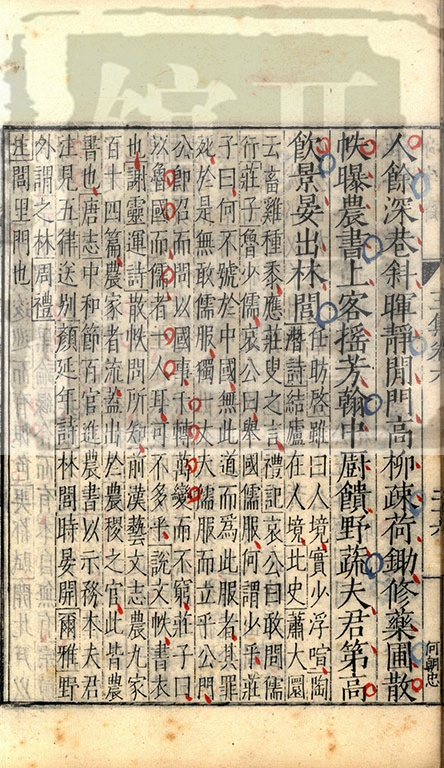 人餘深巷斜暉靜閒門高柳疎荷鋤修藥圃散
帙曝農書上客搖芳翰中厨饋野蔬夫君第高
飲景晏出林閭
任助啓雖曰人境實少浮喧陶
潛詩結廬在人境北史蕭大圜
云畜雞種黍應莊叟之言禮記哀公曰敢問儒
行莊子魯少儒哀公曰舉國儒服何謂少乎莊
子曰何不號於中國無此道而為此服者其罪
死於是無敢儒服獨一大夫儒服而立乎公門
公即召而問以國事千轉萬變而不窮莊子曰
以魯國而儒者一人耳可不多乎說文帙書衣
也謝靈運詩散帙問所知前漢藝文志農九家
百十四篇農家者流蓋出於農稷之官此皆農
書也唐志中和節百官進農書以示務本夫君
注見五律送别顏延年詩林間時晏開爾雅野
外謂之林周禮
註閭里門也
何朝忠